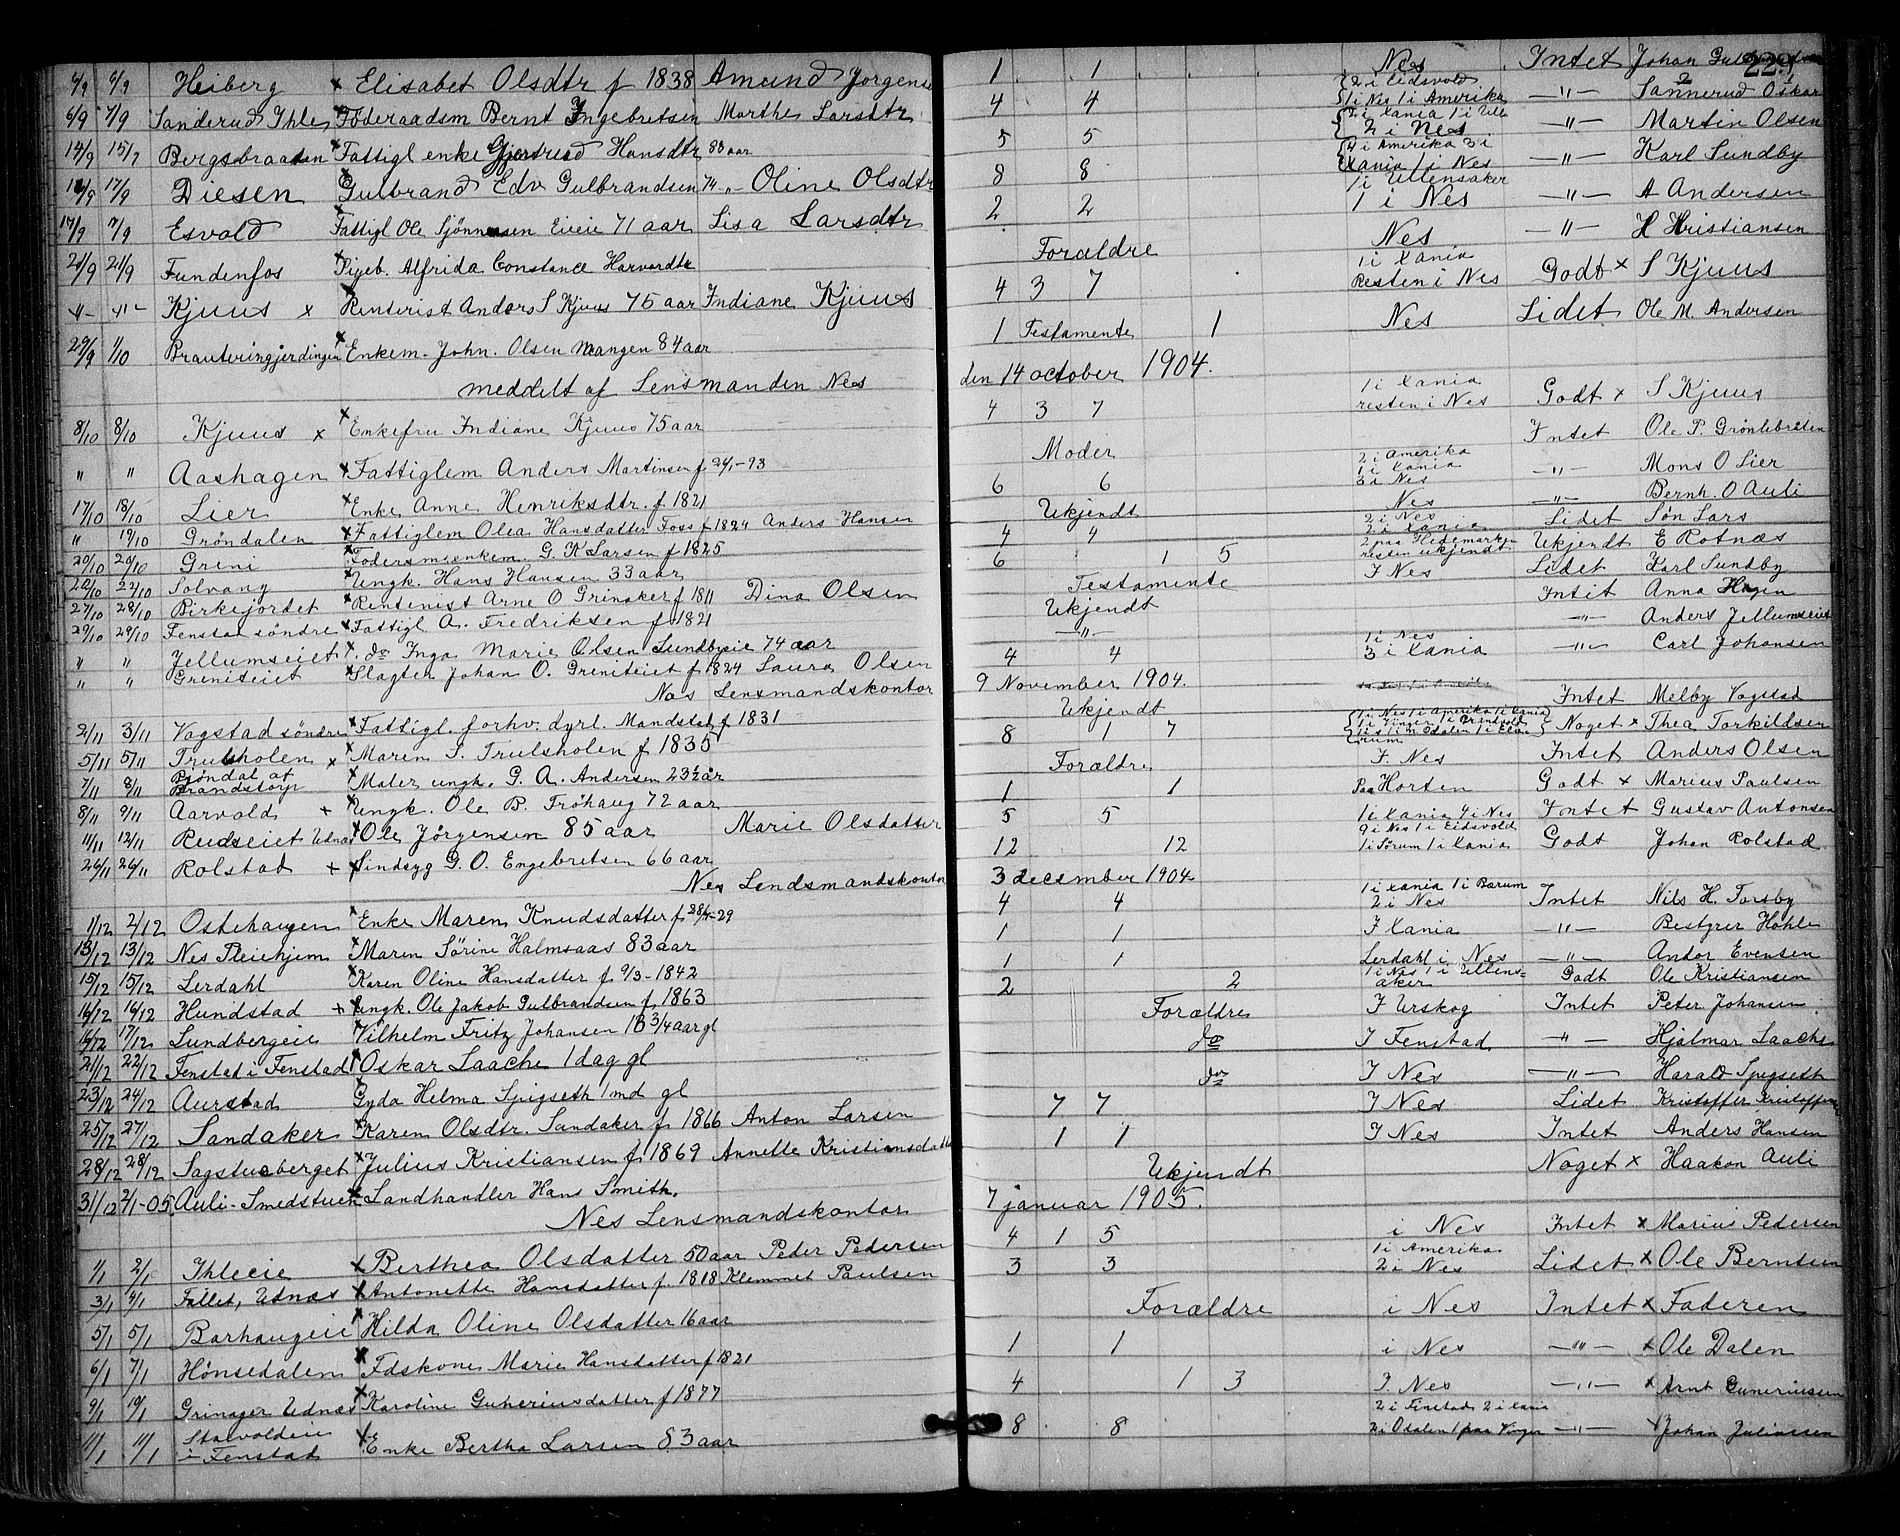 229
6/9 6/9 Heiberg x Elisabet Olsdtr f 1838 Amund Jorgens 1 1 Nes Intet Johan
6/9 7/9 Sanderud Ihle Föderaadsm Bernt Ingebretsen Marthe Larsdtr 4 4 2 i Eidsvold 1 i Nes 1 i Amerika —"— Sannerud Oskar
14/9 15/9 Bergsbraatan Fattigl enke Gjertrud Hansdtr 83 aar 5 5 2 i Xania 1 i Ull 2 i Nes —"— Martin Olsen
17/9 Diesen Gulbrand Edv Gulbrandsen 74 „ Oline Olsdtr 8 8 4 i Amerika 3 i Xania 1 i Nes —"— Karl Sundby
17/9 Esvold Fattigl Ole Sjönnesen Eieie 71 aar Lisa Larsdtr 2 2 1 i Ullensaker 1 i Nes —"— A Andersen
21/9 21/9 Fundenfos Pigeb. Alfrida Constance Harvardtr Forældre Nes —"— H Kristiansen
-"- -"- Kjuus x Rentenist Anders S Kjuus 75 aar Indiane Kjuus 4 3 7 1 i Xania Resten i Nes Godt x S Kjuus
29/9 1/10 Brauteringjerdingen Enkem. John. Olsen Mangen 84 aar 1 Testamente 1 Nes Lidet Ole M. Andersen
meddelt af Lensmanden Nes den 14 october 1904.
8/10 8/10 Kjuus x Enkefru Indiane Kjuus 75 aar 4 3 7 1 i Xania resten i Nes Godt x S Kjuus
" " Aashagen x Fattiglem Anders Martinsen f 24/1-93 Moder Intet Ole P. Grönlibråten
17/10 18/10 Lier x Enke Anne Henriksdtr. f 1821 6 6 2 i Amerika 1 i Xania 3 i Nes —"— Mons O Lier
" 19/10 Gröndalen x Fattiglem Olea Hansdatter Foss f 1824 Anders Hansen Ukjendt Nes —"— Bernh. O Auli
20/10 20/10 Greni x Födersmsenkem. G. K Larsen f 1825 4 4 2 i Nes 2 i Xania Lidet Sön Lars
22/10 22/10 Solvang x Ungk. Hans Hansen 33 aar 6 1 5 2 paa Hedemarken resten ukjendt Ukjendt E Rotnæs
27/10 28/10 Birkejordet x Rentenist Arne O Grinaker f 1811 Dina Olsen Testamente I Nes Lidet Karl Sundby
29/10 29/10 Fenstad söndre x Fattigl A. Fredriksen f 1821 Ukjendt Intet Anna Hagen
" " Jellumseiet x do Inga Marie Olsen Sundbyeie 74 aar —"— —"— Anders Jellumseiet
" " Greniteiet x Slagter Johan O. Greniteiet f 1824 Laura Olsen 4 4 1 i Nes 3 i Xania —"— Carl Johansen
Nes Lensmandskontor 9 November 1904.
2/11 3/11 Vogstad söndre x Fattigl. forhv. dyrl. Mandstad f 1831 Ukjendt Intet Melby Vogstad
5/11 5/11 Trulsholen x x Maren S. Trulsholen f 1835 8 1 7 1 i Nes 1 i Amerika 1 i Xania Noget x Thea Torkildsen
7/11 8/11 Bjöndal af Brandstorp x Maler ungk. G. A. Andersen 23½ år Forældre I. Nes Intet Anders Olsen
8/11 9/11 Aarvold + x Ungk. Ole B. Fröhaug 72 aar 1 1 Paa Horten Godt x Marius Paulsen
11/11 12/11 Rudseiet Udnæs x Ole Jörgensen 85 aar Marie Olsdatter 5 5 1 i Xania 4 i Nes Intet Gustav Antonsen
26/11 26/11 Rolstad + x Sindsyg G. O. Engebretsen 66 aar 12 12 9 i Nes 1 i Eidsvold 1 i Sörum 1 i Xania Godt Johan Rolstad
Nes Lendsmandskontor 3 december 1904
1/12 2/12 Ostehaugen x Enke Maren Knudsdatter f 28/4-29 4 4 1 i Xania 1 i Bærum 2 i Nes Intet Nils H. Torsby
13/12 13/12 Nes Pleiehjem x Maren Sörine Halmsaas 83 aar 1 1 I Xania —"— Bestyrer Hohle
15/12 15/12 Lerdahl x Karen Oline Hansdatter f. 9/3-1842 1 1 Lerdahl i Nes —"— Andor Evensen
16/12 16/12 Hundstad + Ungk. Ole Jakob Gulbrandsen f. 1863 2 2 1 i Nes 1 i Ullensaker Godt Ole Kristiansen
16/12 17/12 Lundbergeie Vilhelm Fritz Johansen 18 3/4 aar gl Forældre I Urskog Intet Peter Johansen
21/12 22/12 Fenstad i Fenstad Oskar Laache 1 dag gl do I Fenstad —"— Hjalmar Laache
23/12 24/12 Aurstad x Gyda Helma Spigseth 1 md gl do I Nes —"— Harald Spigseth
25/12 27/12 Sandaker x Karen Olsdtr. Sandaker f 1866 Anton Larsen 7 7 I Nes Lidet Kristoffer Kristoffersen
28/12 28/12 Sagstueberget x Julius Kristiansen f 1869 Annette Kristiansdatter 1 1 I Nes Intet Anders Hansen
31/12 2/1-05 Auli-Smedstuen x Landhandler Hans Smith. Ukjendt Noget x Haakon Auli
Nes Lensmandskontor 7 januar 1905.
1/1 2/1 Ihleeie x Berthea Olsdatter 50 aar Peder Pedersen 4 1 5 i Nes Intet x Marius Pedersen
3/1 4/1 Fallet, Udnæs x Antonette Hansdatter f 1818 Klemmet Paulsen 3 3 1 i Amerika 2 i Nes Lidet x Ole Berntsen
5/1 5/1 Barhaugeie x Hilda Oline Olsdatter 16 aar Forældre i Nes Intet x Faderen
6/1 7/1 Hönsedalen x Fdskone Marie Hansdatter f 1821 1 1 i Nes —"— x Ole Dalen
9/1 10/1 Grinager Udnæs x Karoline Guneriusdatter f 1877 4 1 3 I. Nes —"— x Arnt Guneriussen
11/1 11/1 Starvoldeie i Fenstad x Enke Bertha Larsen 83 aar 8 8 2 i Fenstad 2 i Xania 2 i Odalen 1 paa Vinger —"— x Johan Juliussen